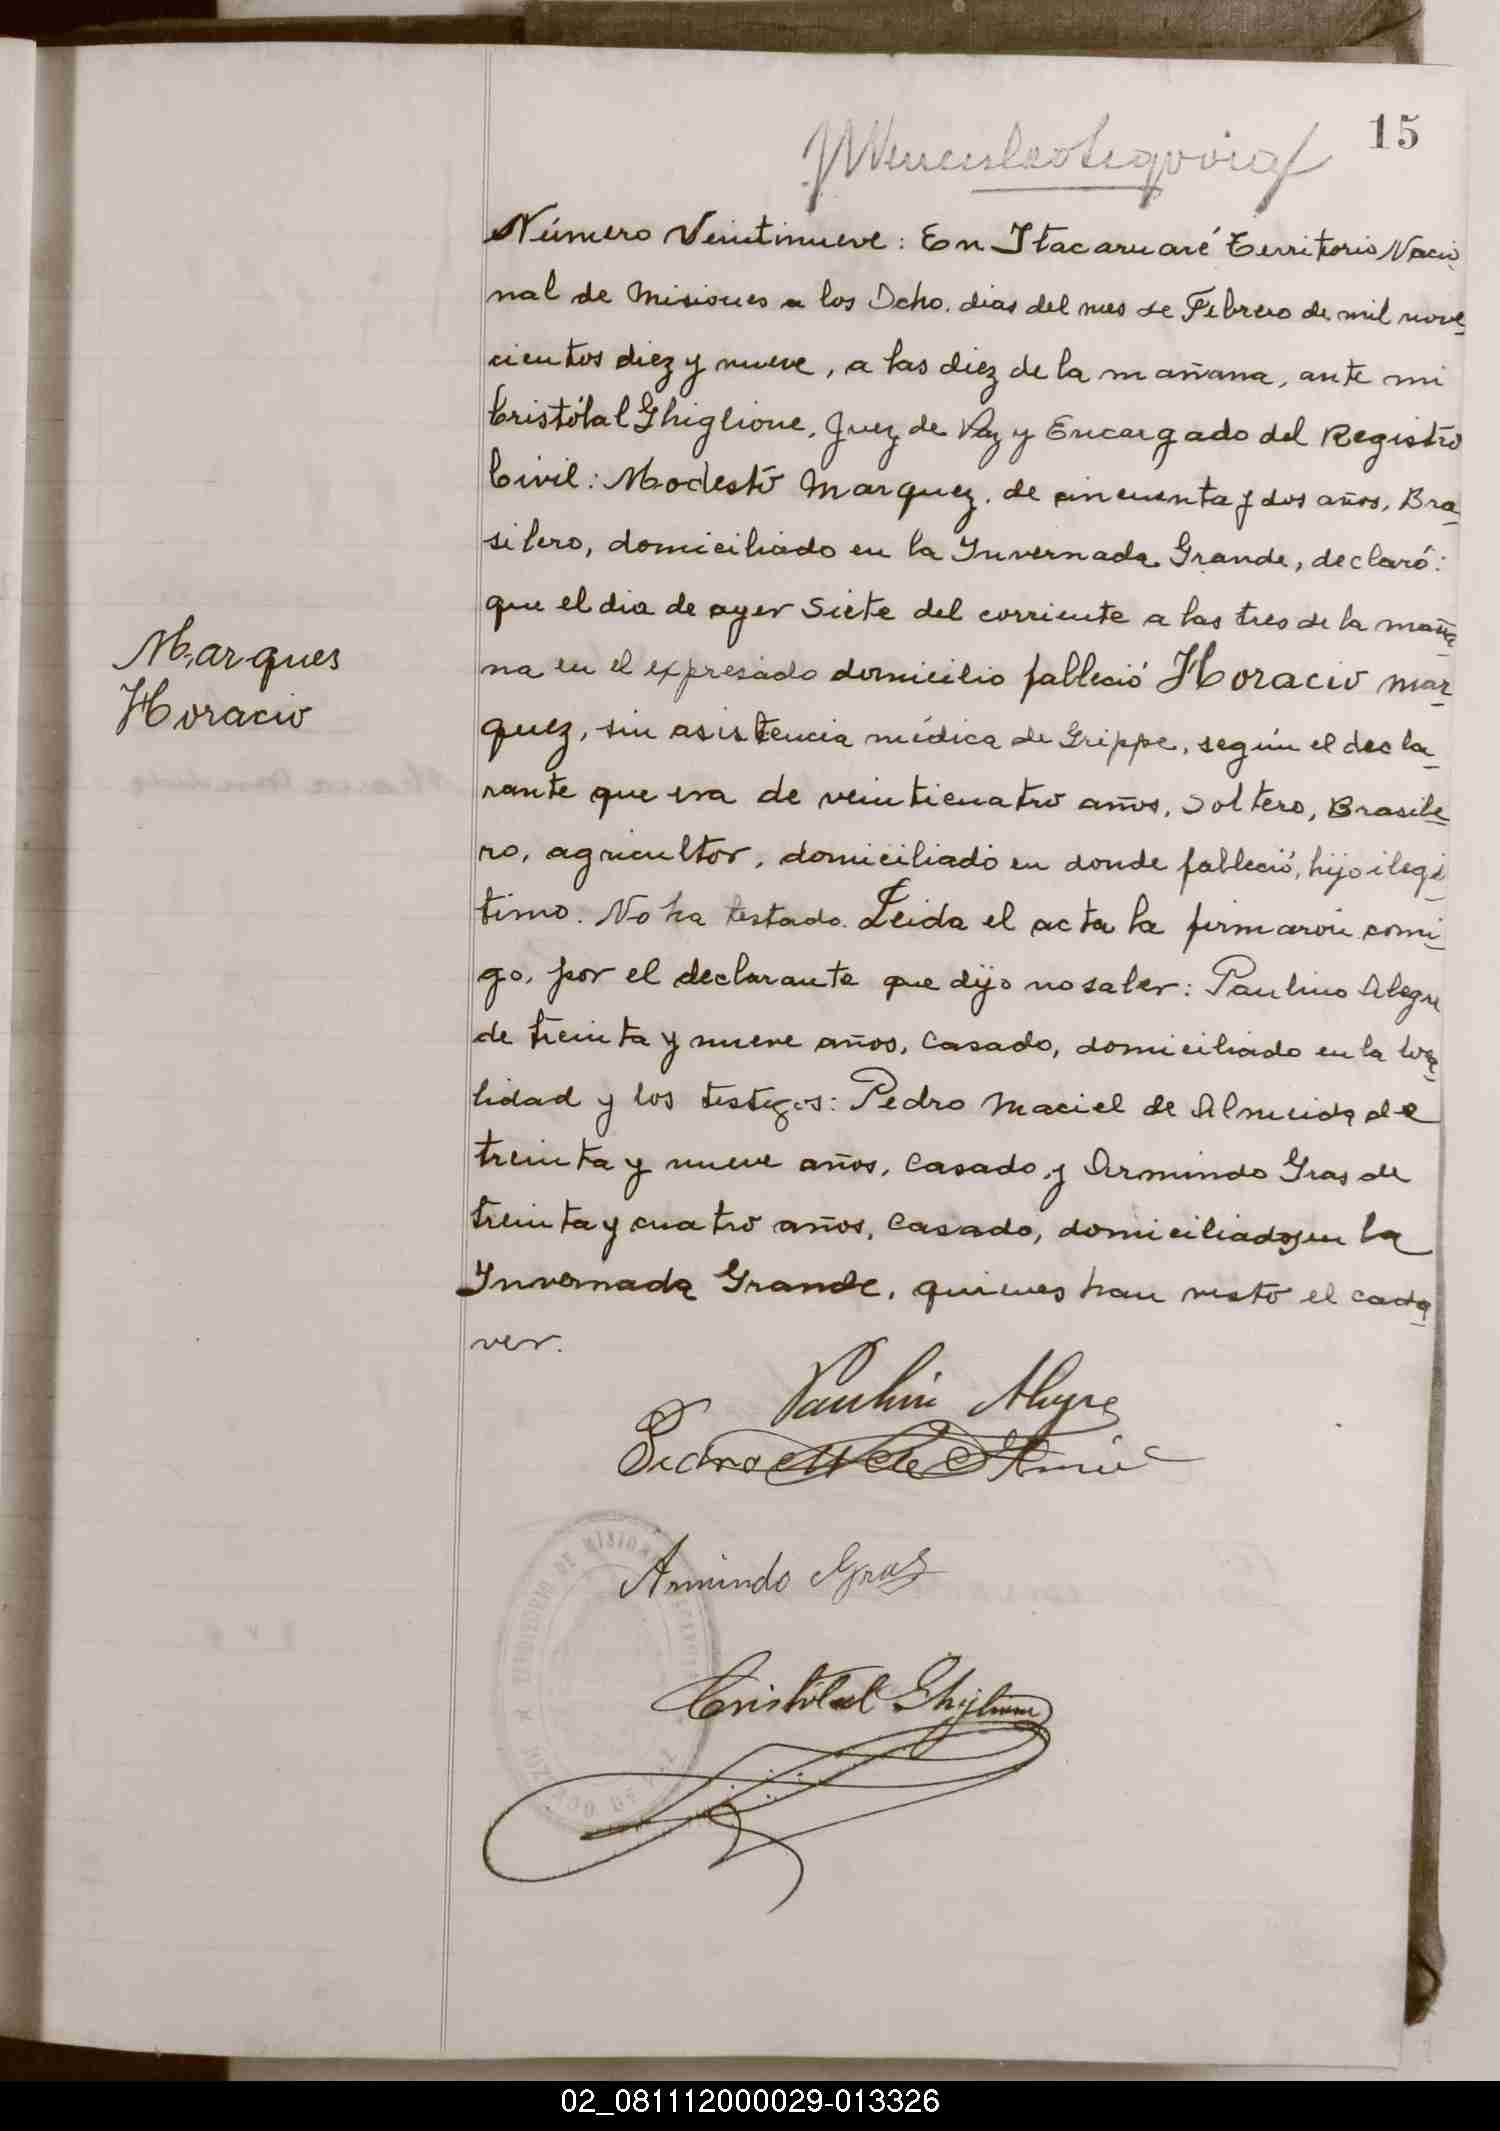 15
Número Veintinueve: En Itacaruaré Territorio Nacio
nal de Misiones a los Ocho. dias del mes de Febrero de mil nove-
cientos diez y nueve, a las diez de la mañana, ante mi
Cristóbal Ghiglione, Juez de Paz y Encargado del Registro
Civil: Modesto Marquez, de cincuenta y dos años, Bra-
silero, domiciliado en la Invernada Grande, declaró:
que el dia de ayer Siete del corriente a las tres de la maña-
na en el expresado domicilio falleció Horacio Mar-
quez, sin asistencia médica de Grippe, según el decla-
rante que era de veinticuatro años, Soltero, Brasile-
ro, agricultor, domiciliado en donde falleció, hijo ilegí-
timo. No ha testado. Leida el acta la firmaron conmi-
go, por el declarante que dijo no saber: Paulino Alegre
de treinta y nueve años, Casado, domiciliado en la loca-
lidad y los testigos: Pedro Maciel de Almeida de
treinta y nueve años, Casado y Armindo Gras de
treinta y cuatro años, Casado, domiciliados en la
Invernada Grande, quienes han visto el cadá-
ver.
Marques
Horacio
Paulin Alegre
Pedro M de
Armindo Gras
Cristóbal Ghiglione
JUZGADO DE PAZ
TERRITORIO DE MISIONES
02_081112000029-013326